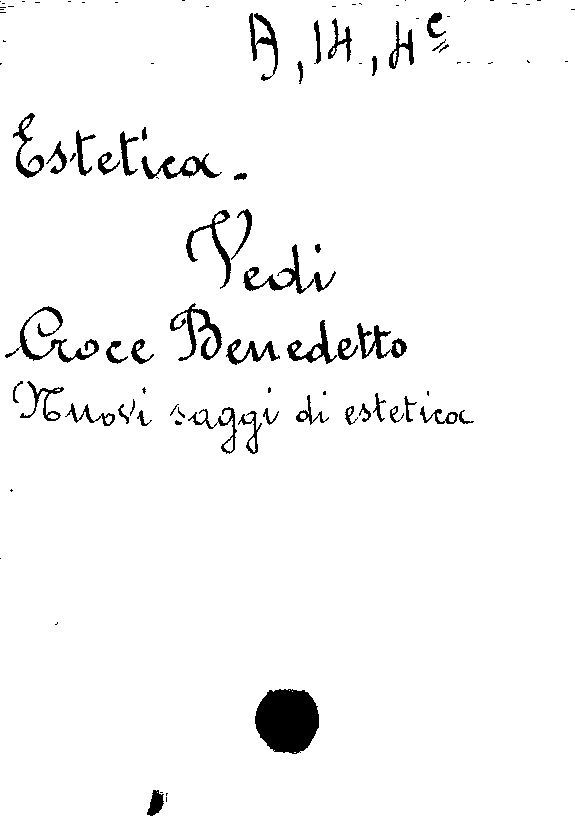 A, 14, 4ᶜ
Estetica -
Vedi
Croce Benedetto
Nuovi saggi di estetica